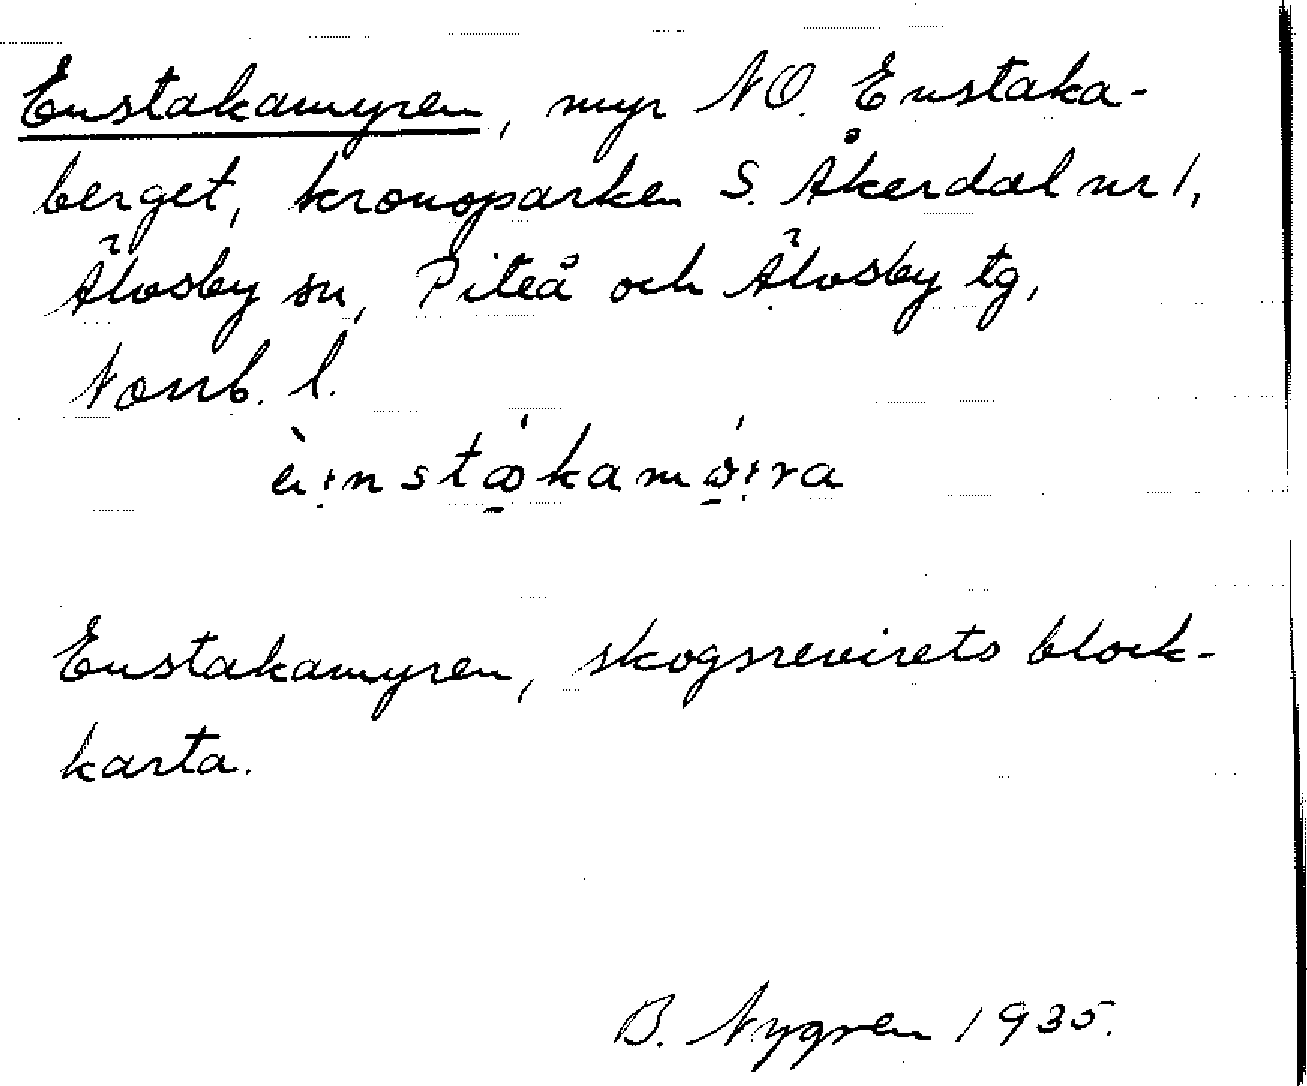 Enstakamyren, myr NO. Enstaka-
berget, kronoparken S. Åkerdal nr 1,
Älvsby sn, Piteå och Älvsby tg,
Norrb. l.
Enstakamyren, skogsrevirets block-
karta.
B. Nygren 1935.